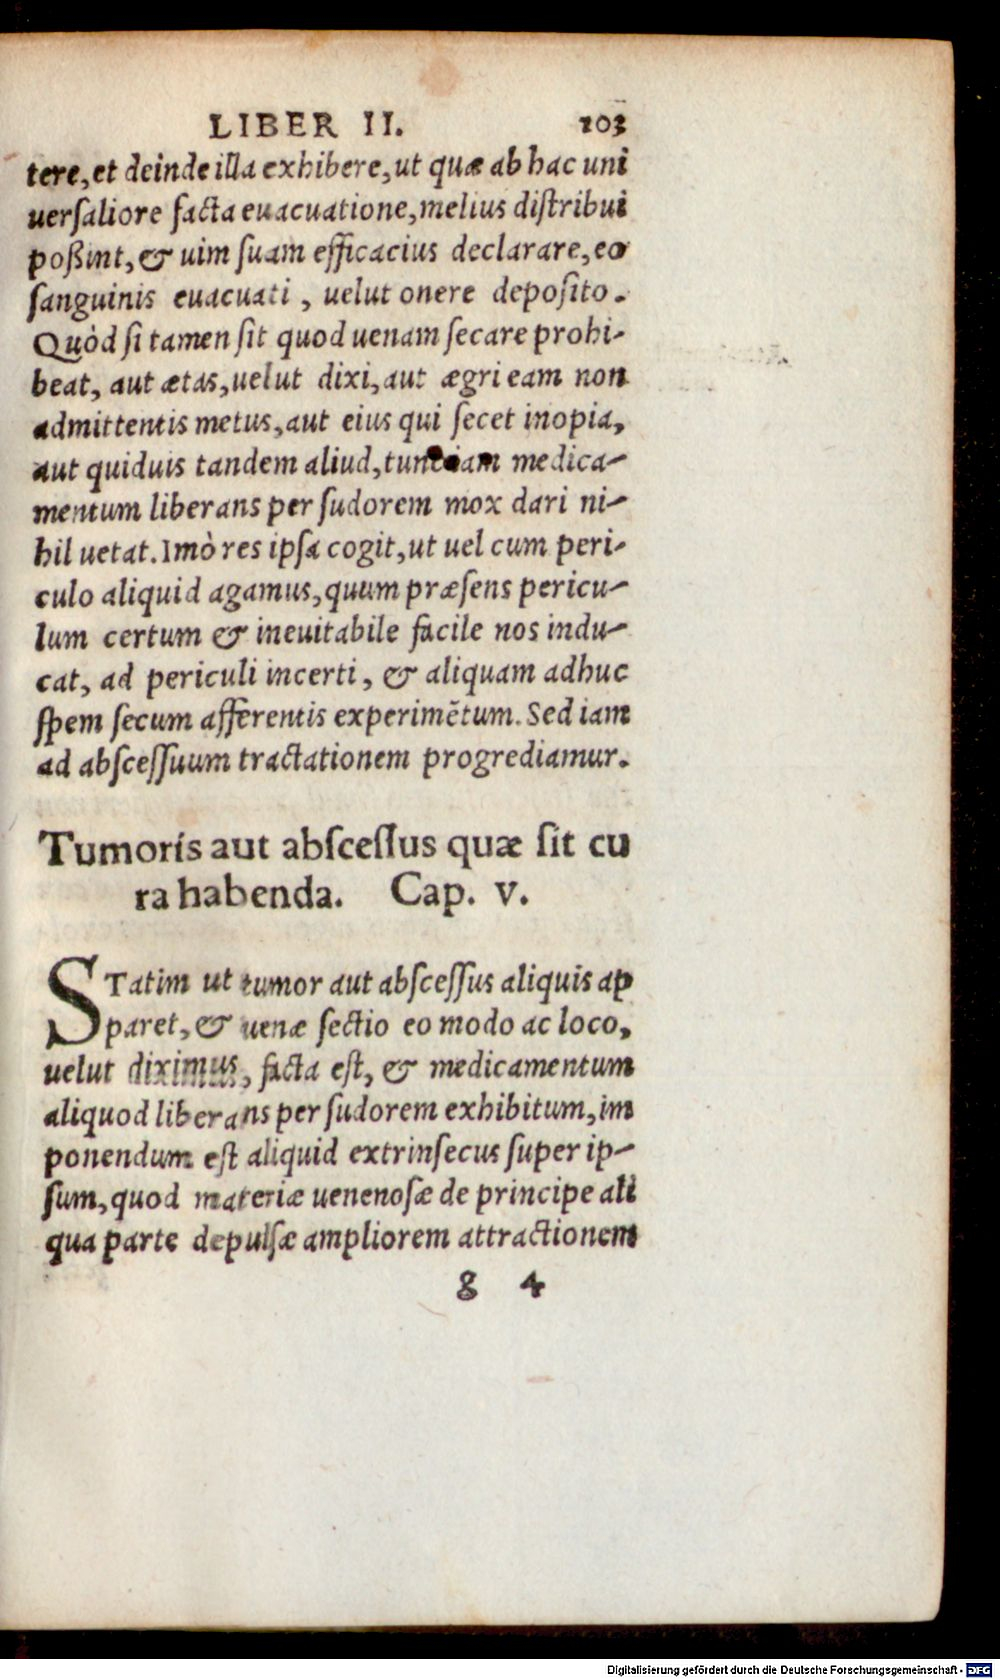 LIBER II. 103
tere, et deinde illa exhibere, ut quæ ab hac uni
uerſaliore facta euacuatione, melius diſtribui
poßint, & uim ſuam efficacius declarare, eo
ſanguinis euacuati, uelut onere depoſito.
Quòd ſi tamen ſit quod uenam ſecare prohi-
beat, aut ætas, uelut dixi, aut ægri eam non
admittentis metus, aut eius qui ſecet inopia,
aut quiduis tandem aliud, tunc iam medica-
mentum liberans per ſudorem mox dari ni-
hil uetat. Imò res ipſa cogit, ut uel cum peri-
culo aliquid agamus, quum præſens pericu-
lum certum & ineuitabile facile nos indu-
cat, ad periculi incerti, & aliquam adhuc
ſpem ſecum afferentis experimētum. Sed iam
ad abſceſſuum tractationem progrediamur.
Tumoris aut abſceſſus quæ ſit cu
ra habenda. Cap. v.
STatim ut tumor aut abſceſſus aliquis ap
paret, & uenæ ſectio eo modo ac loco,
uelut diximus, facta eſt, & medicamentum
aliquod liberans per ſudorem exhibitum, im
ponendum eſt aliquid extrinſecus ſuper ip-
ſum, quod materiæ uenenoſæ de principe ali
qua parte depulſæ ampliorem attractionem
g 4
Digitalisierung gefördert durch die Deutsche Forschungsgemeinschaft - DFG